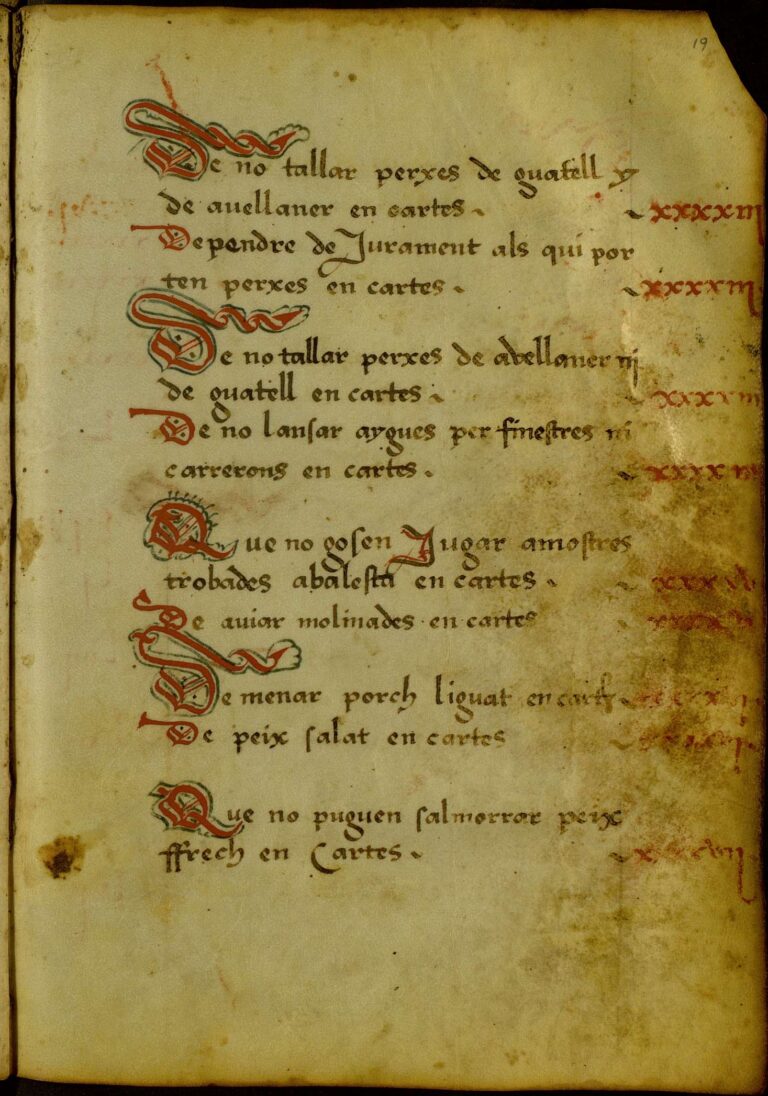 19
De no tallar perxes de guatell y
de auellaner en cartes xxxxiij
Dependre de Jurament als qui por
ten perxes en cartes xxxxiij
De no tallar perxes de avellaner nj
de guatell en cartes
De no lansar aygues per finestres ni
carrerons en cartes
Que no gosen Jugar amostres
trobades abalesta en cartes
De auiar molinades en cartes
De menar porch liguat en cartes
De peix salat en cartes
Que no puguen salmorrar peix
ffrech en Cartes